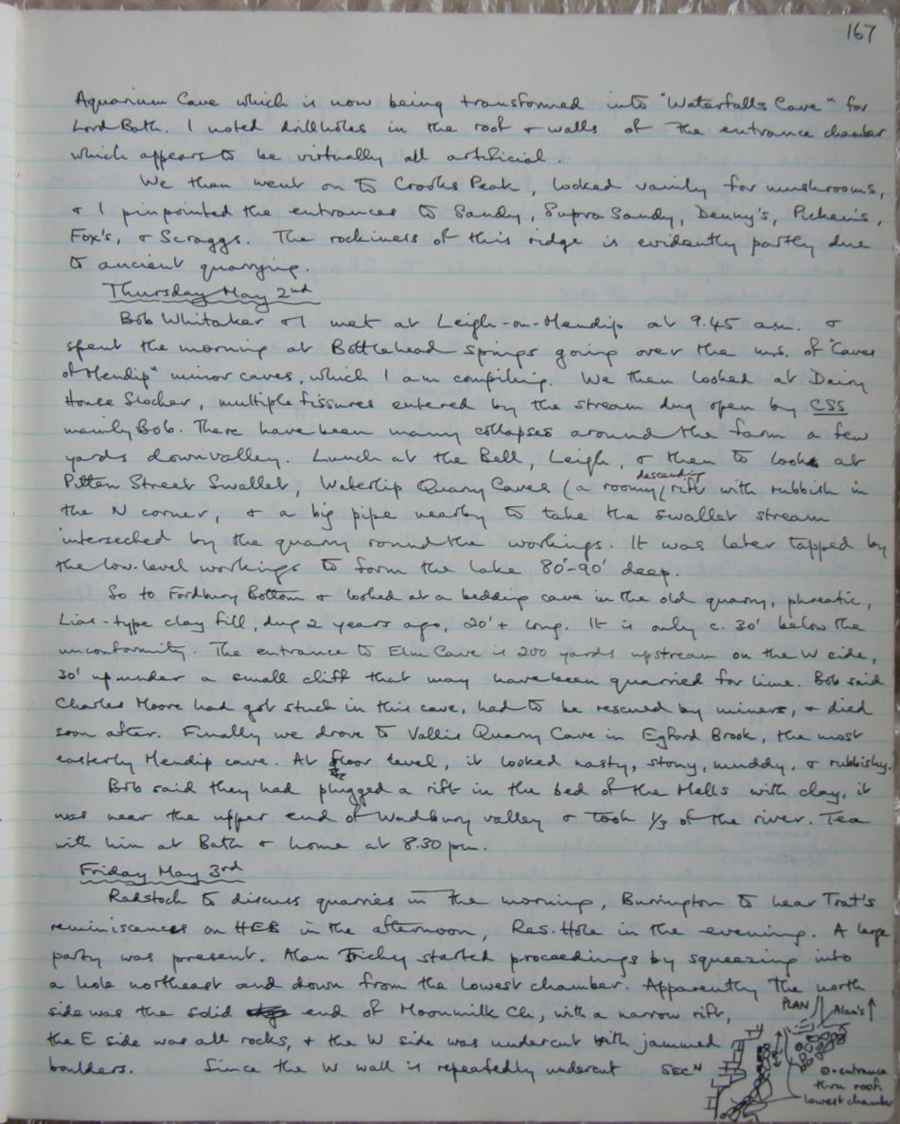 167
Aquarium Cave which is now being transformed into "Waterfalls Cave" for
Lord Bath. I noted drillholes in the roof & walls of the entrance chamber
which appears to be virtually all artificial.
We then went on to Crooks Peak, looked vainly for mushrooms,
& I pinpointed the entrances to Sandy, Supra Sandy, Denny's, Picken's,
Fox's, & Scraggs. The rockiness of this ridge is evidently partly due
to ancient quarrying.
Thursday May 2nd
Bob Whitaker & I met at Leigh-on-Mendip at 9.45 am. &
spent the morning at Bottlehead Springs going over the ms. of "Caves
of Mendip" minor caves, which I am compiling. We then looked at Dairy
House Slocker, multiple fissures entered by the stream dug open by CSS
mainly Bob. There have been many collapses around the farm a few
yards downvalley. Lunch at the Bell, Leigh, & then to look at
Pitten Street Swallet, Waterlip Quarry Caves (a roomy descending rift with rubbish in
the N corner, & a big pipe nearby to take the swallet stream
intersected by the quarry round the workings. It was later tapped by
the low-level workings to form the lake 80'-90' deep.
So to Fordbury Bottom & looked at a bedding cave in the old quarry, phreatic,
Lias-type clay fill, dug 2 years ago, 20'+ long. It is only c. 30' below the
unconformity. The entrance to Elm Cave is 200 yards upstream on the W side,
30' up under a small cliff that may have been quarried for lime. Bob said
Charles Moore had got stuck in this cave, had to be rescued by miners, & died
soon after. Finally we drove to Vallis Quarry Cave in Egford Brook, the most
easterly Mendip cave. At floor level, it looked nasty, stony, muddy, & rubbishy.
Bob said they had plugged a rift in the bed of the Mells with clay, it
was near the upper end of Wadbury valley & took 1/3 of the river. Tea
with him at Bath & home at 8.30 pm.
Friday May 3rd
Radstock to discuss quarries in the morning, Burrington to hear Trat's
reminiscences on HEB in the afternoon, Res. Hole in the evening. A large
party was present. Alan Trickey started proceedings by squeezing into
a hole northeast and down from the lowest chamber. Apparently the north
side was the solid end of Moonmilk Ch, with a narrow rift,
the E side was all rocks, & the W side was undercut with jammed
boulders. Since the W wall is repeatedly undercut
PLAN
Alan's
SECN
entrance
thru roof
lowest chamber